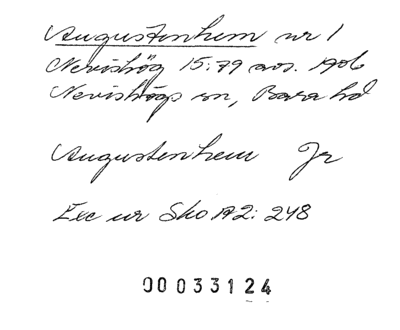 Augustenhem nr 1
Nevishög 15:79 avs. 1906
Nevishögs sn, Bara hd
Augustenhem Jr
Exc nr Sko A2: 248
00033124